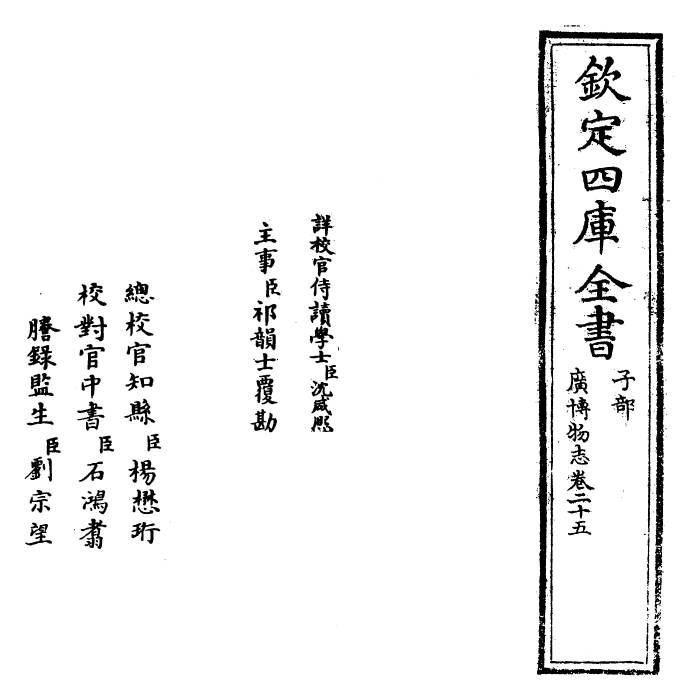 欽定四庫全書
子部
廣博物志卷二十五
詳校官侍讀學士臣沈咸熙
主事臣祁韻士覆勘
總校官知縣臣楊懋珩
校對官中書臣石鴻翥
謄錄監生臣劉宗望